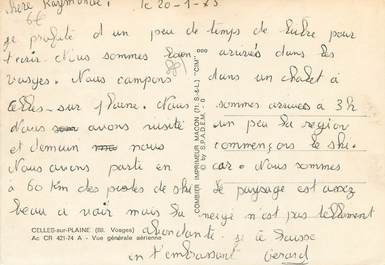 chère Raymonde, le 20-1-75
je profite d'un peu de temps de libre pour
t'ecrir. Nous sommes bien arrivés dans les
vosges. Nous campons dans un chalet à
celles-sur plaine. Nous sommes arrivés à 3h
Nous avons visité un peu la region
et demain nous commençons le ski.
Nous avons parti en car. Nous sommes
à 60 Km des pistes de ski le paysage est assez
beau a voir mais la neige n'est pas tellement
abondante. je te laisse
en t'embrassant Gerard
COMBIER IMPRIMEUR MACON (71. S.-&-L.) "CIM"
© by S.P.A.D.E.M.
CELLES-sur-PLAINE (88. Vosges)
Ac CR 421-74 A - Vue générale aérienne